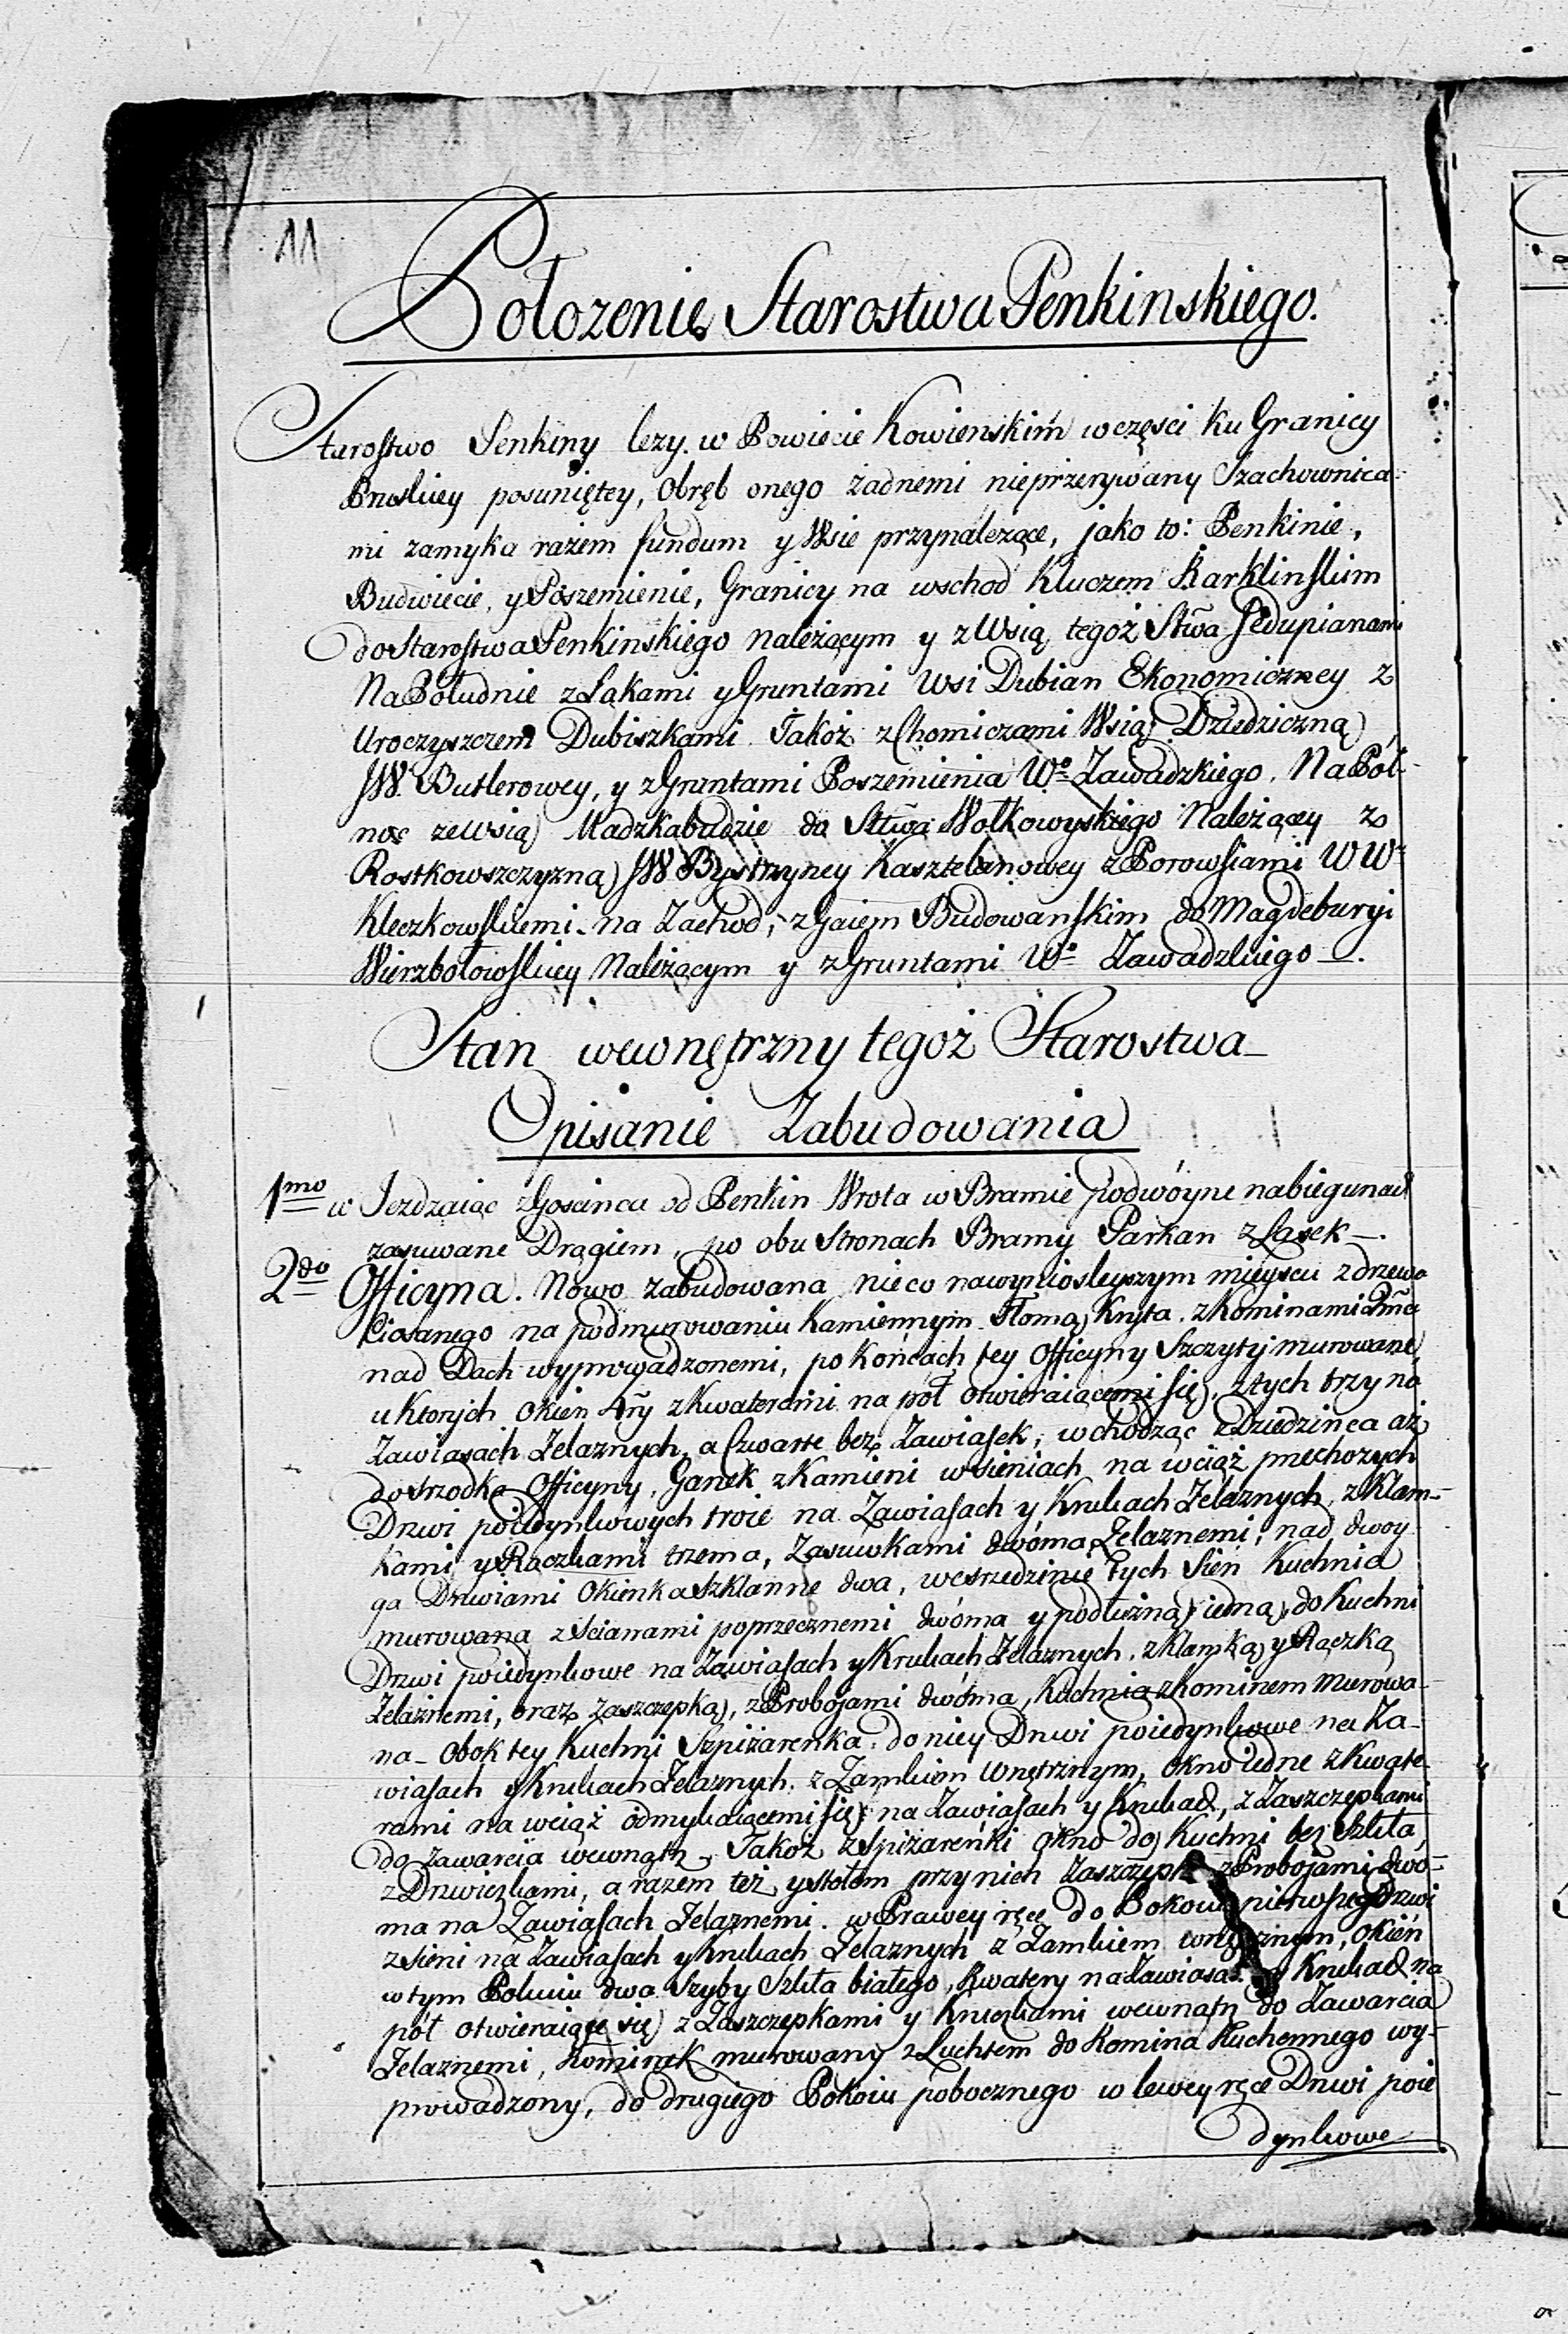 11
Polozenie Starostwa Penkinskiego.
Starostwo Penkiny lezy w Powiecie Kowienskim w częsci ku Granicy
Pruskiey posuniętey, Obręb onego żadnemi nieprzerywany Szachownica-
mi zamyka razem fundum y Wsie przynalezące, jako to: Penkinie,
Budwiecie, y Poszemienie, Granicy na wschod Kluczem Karklinskim
do Starostwa Penkinskiego należącym y z Wsią tegoż Stwa Szedupianami
Na Południe z Łąkami y Gruntami Wsi Dubian Ekonomiczney z
Uroczyszczem Dubiszkami. Takoż z Chomiczami Wsią Dziedziczną
JW. Butlerowey, y z Gruntami Poszemienia Wo Zawadzkiego. Na Pół-
noc ze Wsią Madzkabudzie do Sttwa Wołkowyskiego Należącey z
Rostkowszczyzną JW Bystrzyney Kasztelanowey z Porowsiami WW
Kleczkowskiemi. na Zachod, z Gaiem Budowanskim do Magdeburyi
Wierzbołowskiey Należącym y z Gruntami Wo Zawadzkiego.
Stan wewnętrzny tegoż Starostwa
Opisanie Zabudowania
1mo w Jezdzaiąc z Goscinca od Penkin Wrota w Bramie podwóyne na biegunach
zasuwane Drągiem, po obu Stronach Bramy Parkan z Łasek.
2do Officyna. Nowo zabudowana nieco na wyniosleyszym mieyscu z drzewa
Ciosanego na podmurowaniu Kamiennym Słomą Kryta. z Kominami dma
nad Dach wyprowadzonemi, po końcach tey Officyny Szczyty murowane,
u ktorych Okien 4ry z Kwaterami na pół otwieraiącemi się, z tych trzy na
Zawiasach Zelaznych, a Czwarte bez Zawiasek, wchodząc z Dziedzinca aż
do srzodka Officyny, Ganek z Kamieni w sieniach na wciąż przechozych
Drzwi poiedynkowych troie na Zawiasach y Krukach Zelaznych, z Klam-
kami y Rączkami trzema, Zasuwkami dwóma Zelaznemi, nad dwoy-
ga Drzwiami Okienka Szklanne dwa, we srzedzinie tych Sień Kuchnia
murowana z Scianami poprzecznemi dwóma y podłużną iedną, do Kuchni
Drzwi poiedynkowe na Zawiasach y Krukach Zelaznych. z Klamką y Rączką
Zelaznemi, oraz zaszczepką, z Probojami dwóma, Kuchnia z Kominem Murowa-
na. Obok tey Kuchni Szpiżarenka. do niey Drzwi poiedynkowe na Za-
wiasach y Krukach Zelaznych. z Zamkiem Wnętrznym, Okno Iedne z Kwate-
rami na wciąż odmykaiącemi się na Zawiasach y Krukach, z Zaszczepkami
do zawarcia wewnątrz. Takoż z Spiżareńki Okno do Kuchni bez Szkła,
z Drzwiczkami, a razem też y stołem przy nich Zaszczepk z Probojami dwó-
ma na Zawiasach Zelaznemi. w Prawey ręce do Pokoiu pierwszego Drzwi
z Sieni na Zawiasach y Krukach Zelaznych z Zamkiem wnętrznym, Okien
w tym Pokoiu dwa Szyby Szkła białego, Kwatery na Zawiasach y Krukach na
pół otwieraiące się z Zaszczepkami y Kruczkami wewnątrz do Zawarcia
Zelaznemi, Kominek murowany z Luchtem do Komina Kuchennego wy-
prowadzony, do drugiego Pokoiu pobocznego w lewey ręce Drzwi poie
dynkowe